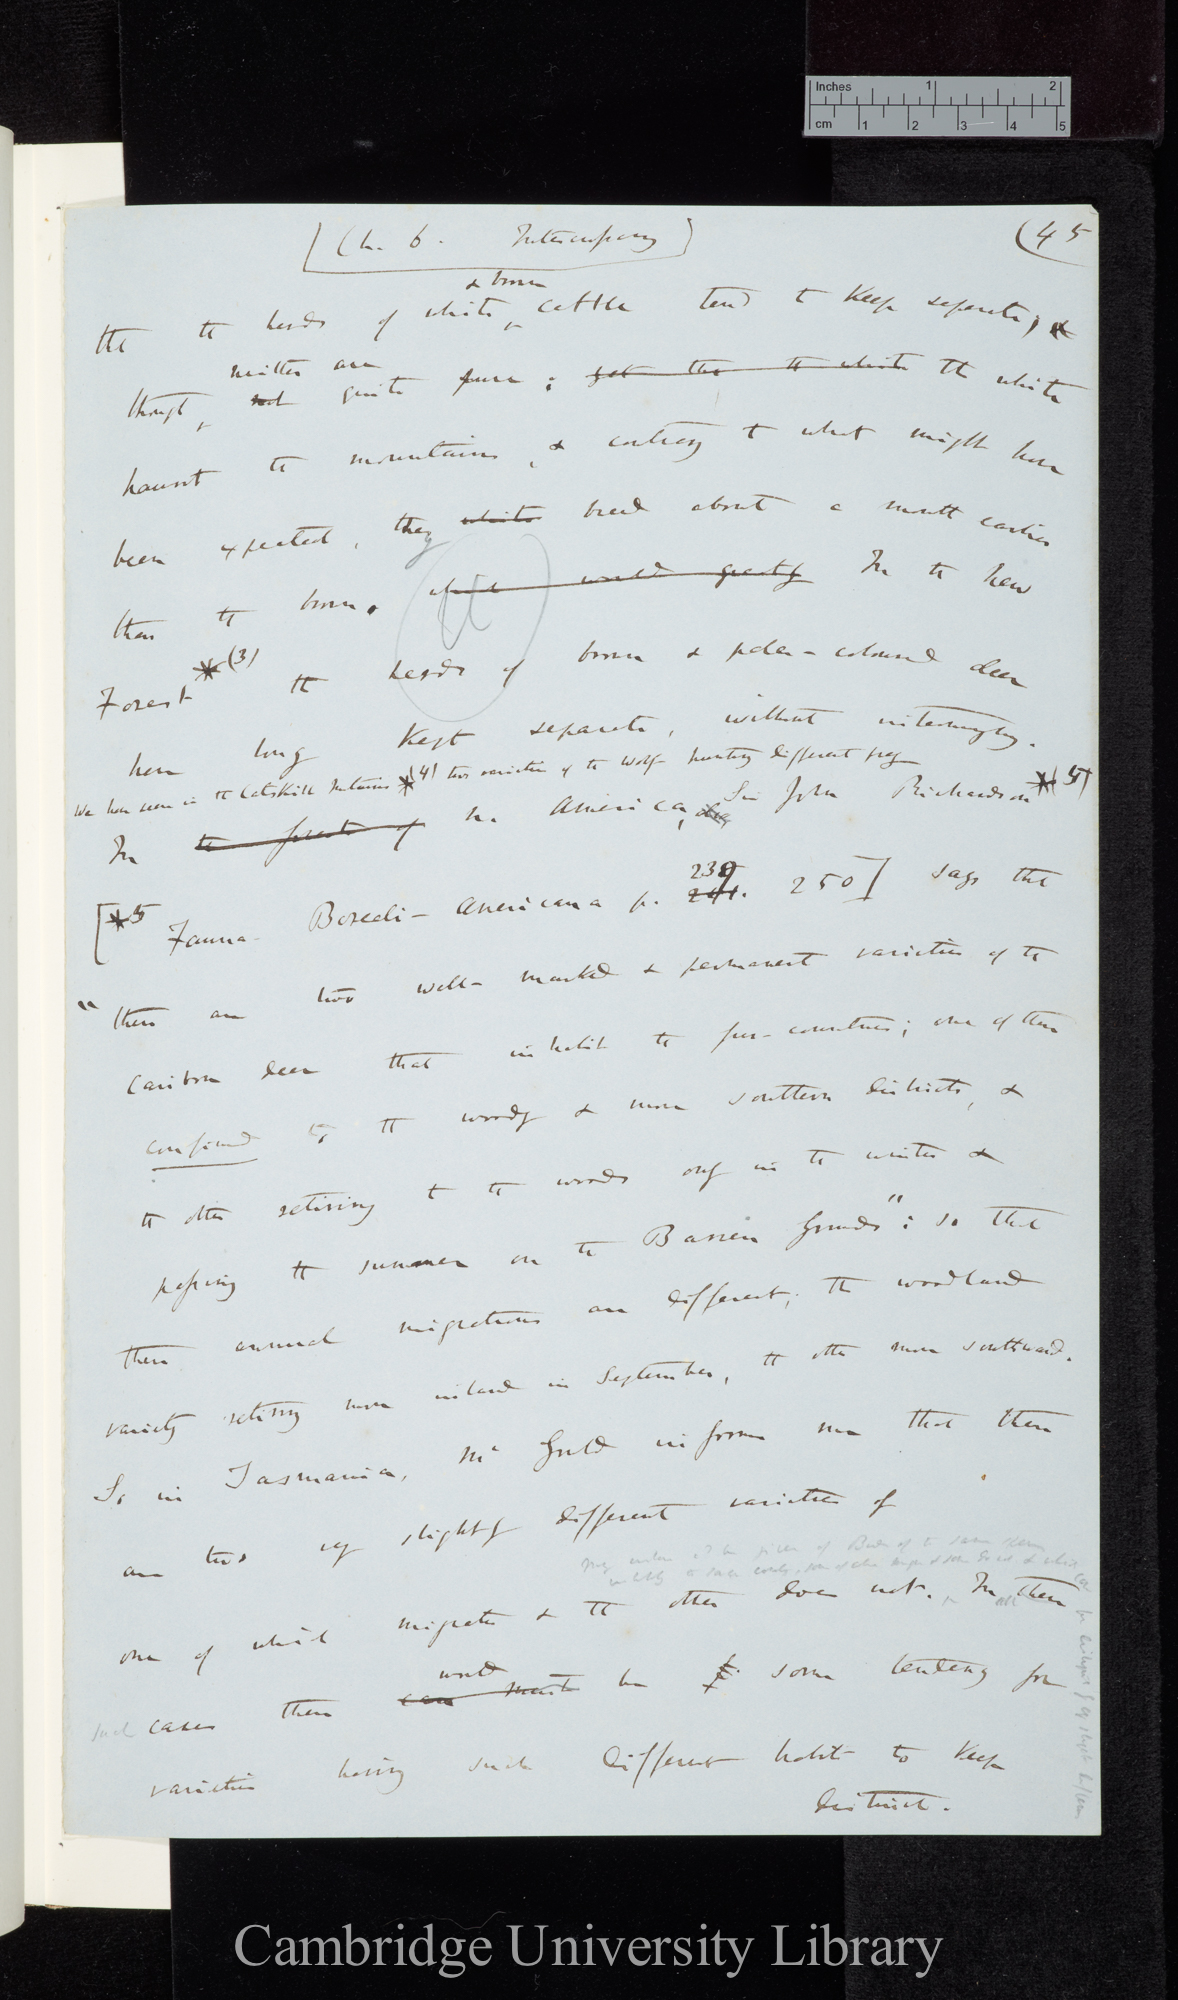 Inches 1 2
cm 1 2 3 4 5
[Ch. 6. Intercrossing] (45
& brown
that the herds of white, cattle tend to keep separate, &
neither are
though, not quite pure; yet the the white The white
haunt the mountains, & contrary to what might have
been expected, they white breed about a month earlier
than the brown. which would greatly In the New
Forest *(3) the herds of brown & pale-coloured deer
have long kept separate, without intermingling.
We have seen in the Catskill Mountains *(4) two varieties of the wolf hunting different prey
In the forest of N. America, Sir John Richardson *(5)
[*5 Fauna Boreali-Americana p. 239 241. 250] says that
"there are two well-marked & permanent varieties of the
Caribou deer that inhabit the fur-countries; one of them
confined to the woody & more southern districts, &
the other retiring to the woods only in the winter &
passing the summer on the Barren Grounds"; so that
their annual migrations are different; the woodland
variety retiring more inland in September, the other more southward.
So in Tasmania, Mr Gould informs me that there
are two very slightly different varieties of
one of which migrates & the other does not. In all these
would
such cases there can must be some tendency for
varieties having such different habits to keep
distinct.
Cambridge University Library